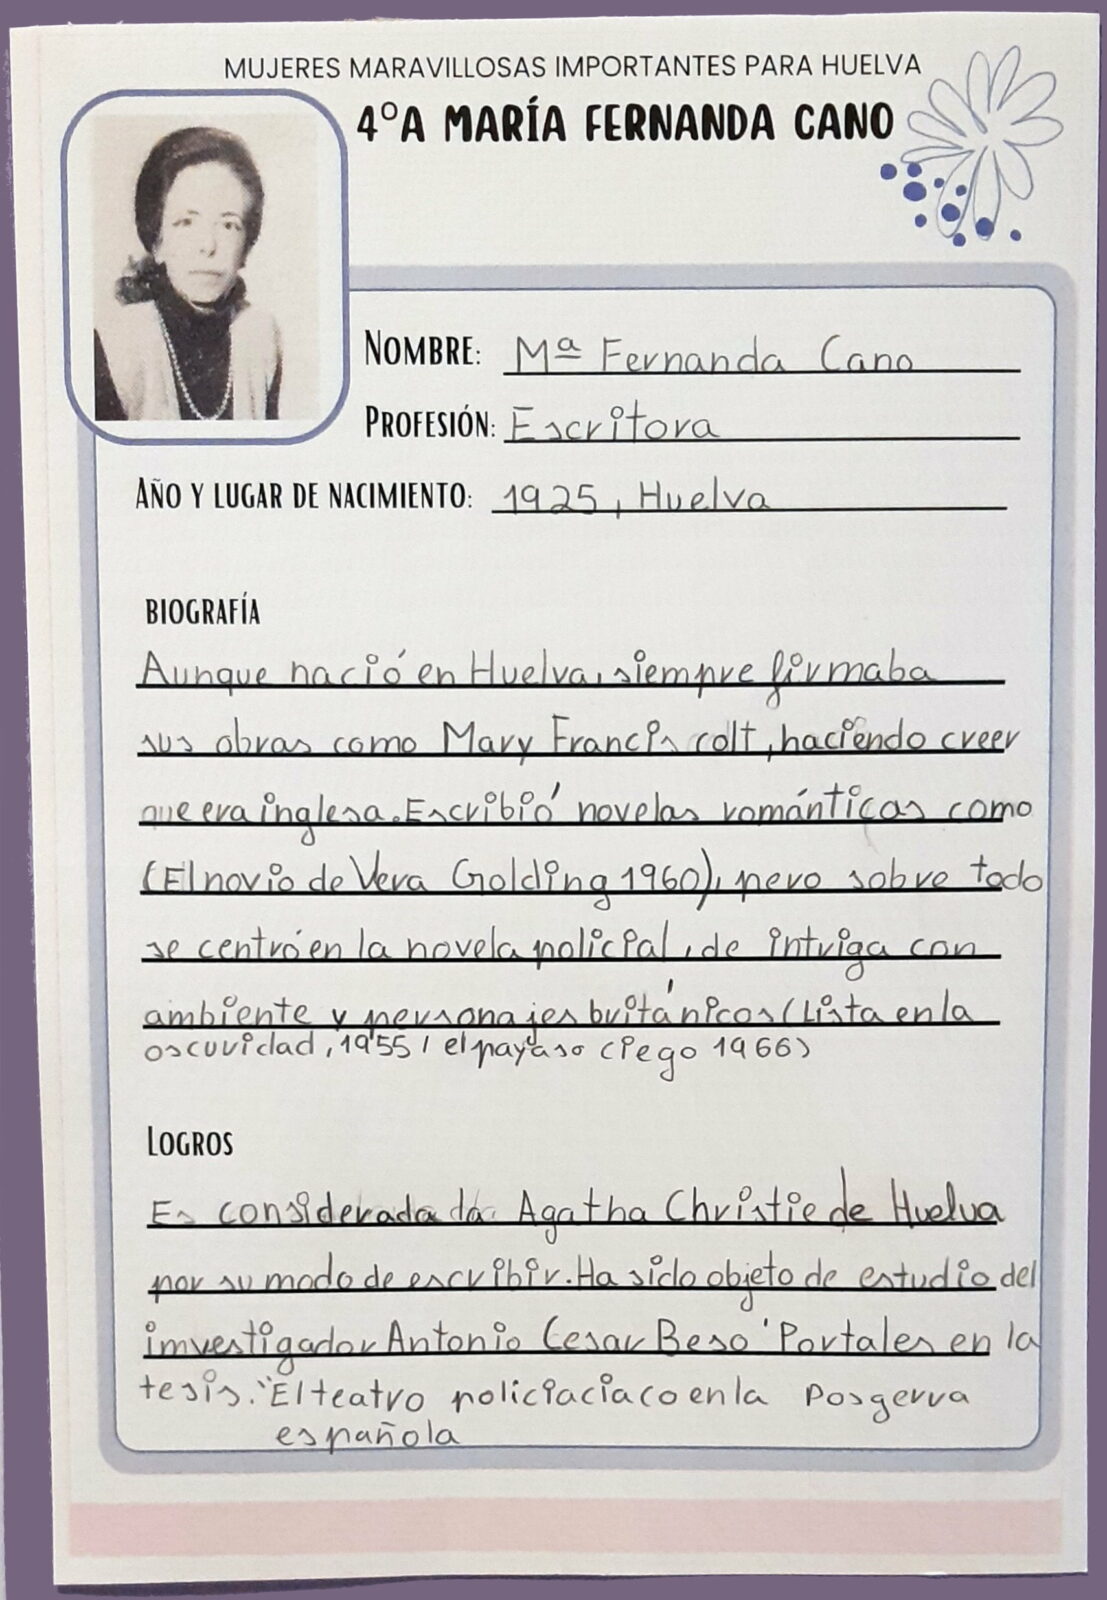 MUJERES MARAVILLOSAS IMPORTANTES PARA HUELVA
4ºA MARÍA FERNANDA CANO
NOMBRE: Mª Fernanda Cano
PROFESIÓN: Escritora
AÑO Y LUGAR DE NACIMIENTO: 1925, Huelva
BIOGRAFÍA
Aunque nació en Huelva, siempre firmaba
sus obras como Mary Francis colt, haciendo creer
que era inglesa. Escribió novelas románticas como
(El novio de Vera Golding 1960), pero sobre todo
se centró en la novela policial, de intriga con
ambiente y personajes británicos (Lista en la
oscuridad, 1955, el payaso ciego 1966)
LOGROS
Es considerada la Agatha Christie de Huelva
por su modo de escribir. Ha sido objeto de estudio del
imvestigador Antonio Cesar Beso' Portales en la
tesis. "El teatro policiaciaco en la Posgerra
española